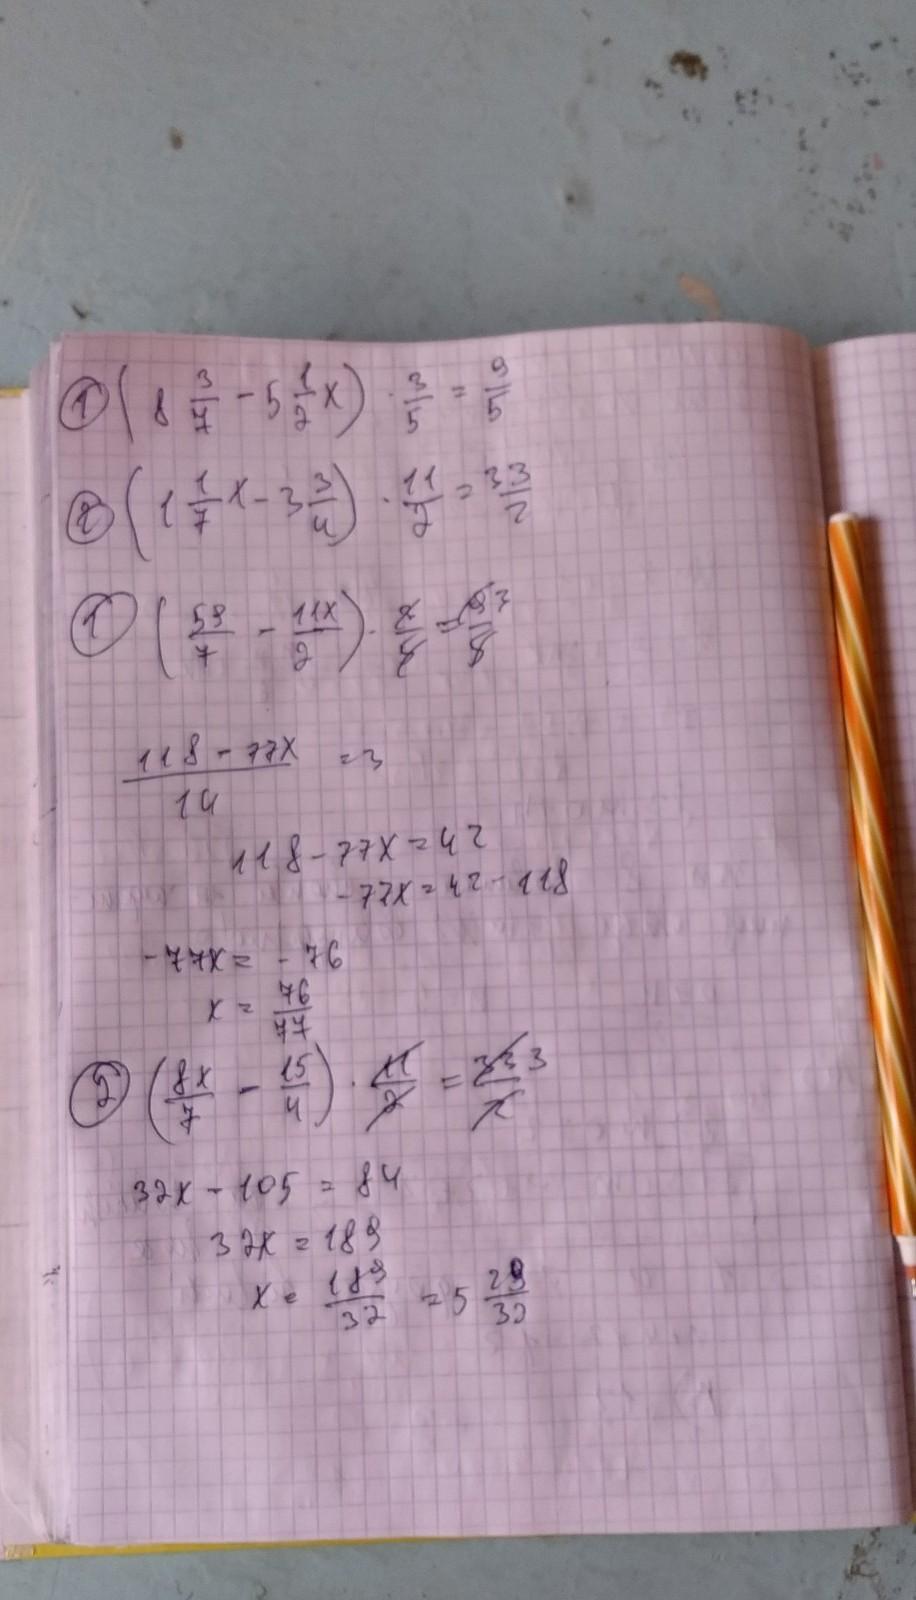 ① (8 3/7 - 5 1/2 x) · 3/5 = 9/5
② (1 1/7 x - 3 3/4) · 11/2 = 33/2
① (59/7 - 11x/2) · 3/5 = 9/5 3
(118 - 77x)/14 = 3
118 - 77x = 42
-77x = 42 - 118
-77x = -76
x = 76/77
② (8x/7 - 15/4) · 11/2 = 33/2 3
32x - 105 = 84
32x = 189
x = 189/32 = 5 29/32